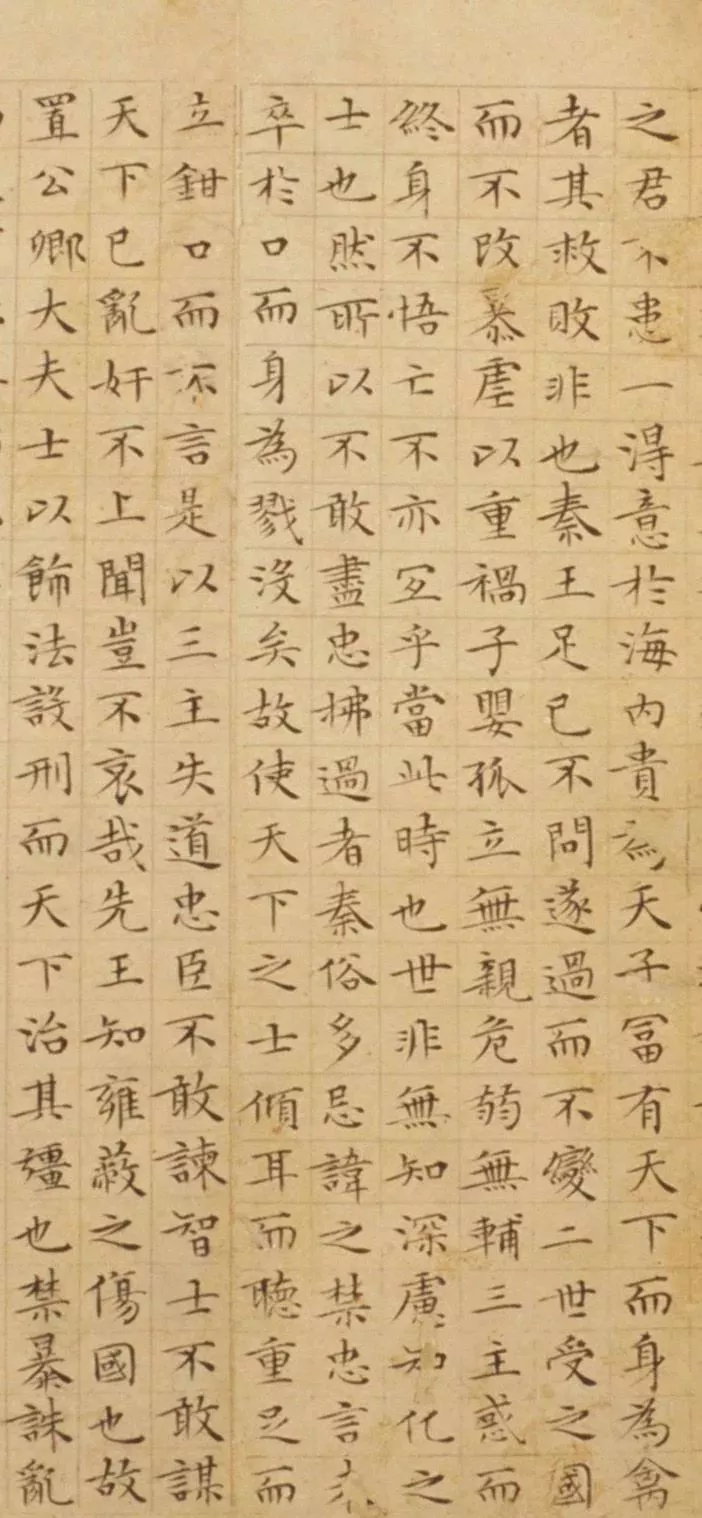 之君不患一淂意於海内貴為天子冨有天下而身為禽
者其救敗非也秦王足已不問遂過而不變二世受之國
而不改暴虐以重禍子嬰孤立無親危弱無輔三主惑而
終身不悟亡不亦冝乎當此時也世非無知深慮知化之
士也然所以不敢盡忠拂過者秦俗多忌諱之禁忠言未
卒於口而身為戮沒矣故使天下之士傾耳而聴重足而
立鉗口而不言是以三主失道忠臣不敢諫智士不敢謀
天下已亂奸不上聞豈不哀哉先王知雍蔽之傷國也故
置公卿大夫士以飾法設刑而天下治其彊也禁暴誅亂